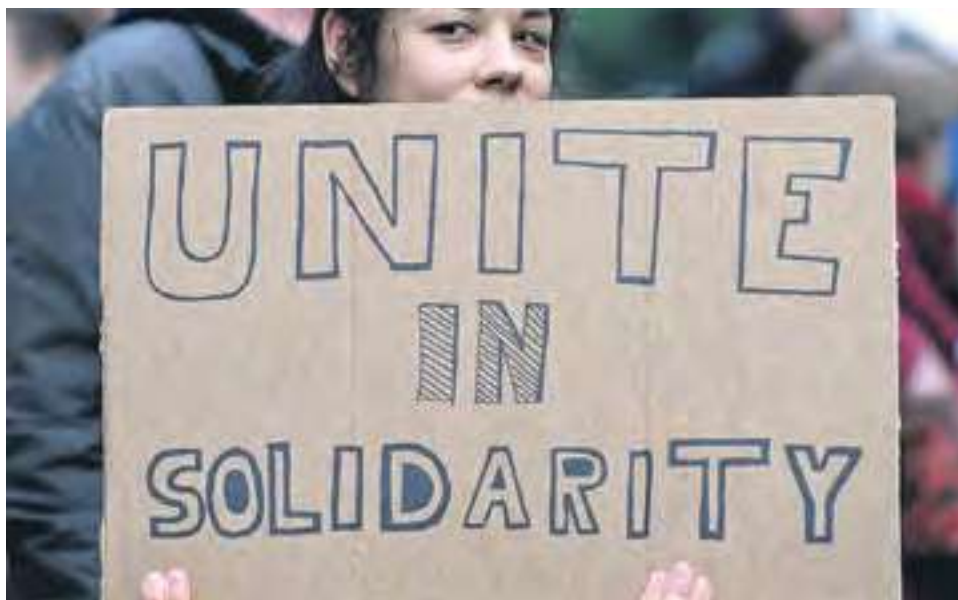 UNITE
IN
SOLIDARITY